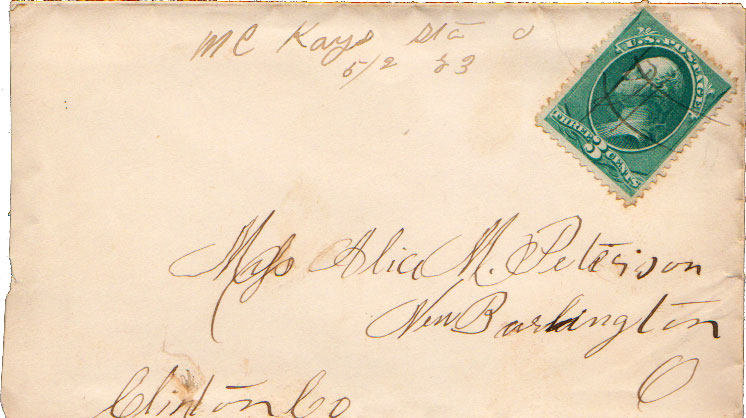 Mc Kays Sta O
5/2 83
U.S. POSTAGE
THREE 3 CENTS
Miss Alice M. Peterson
New Burlington
O
Clinton Co